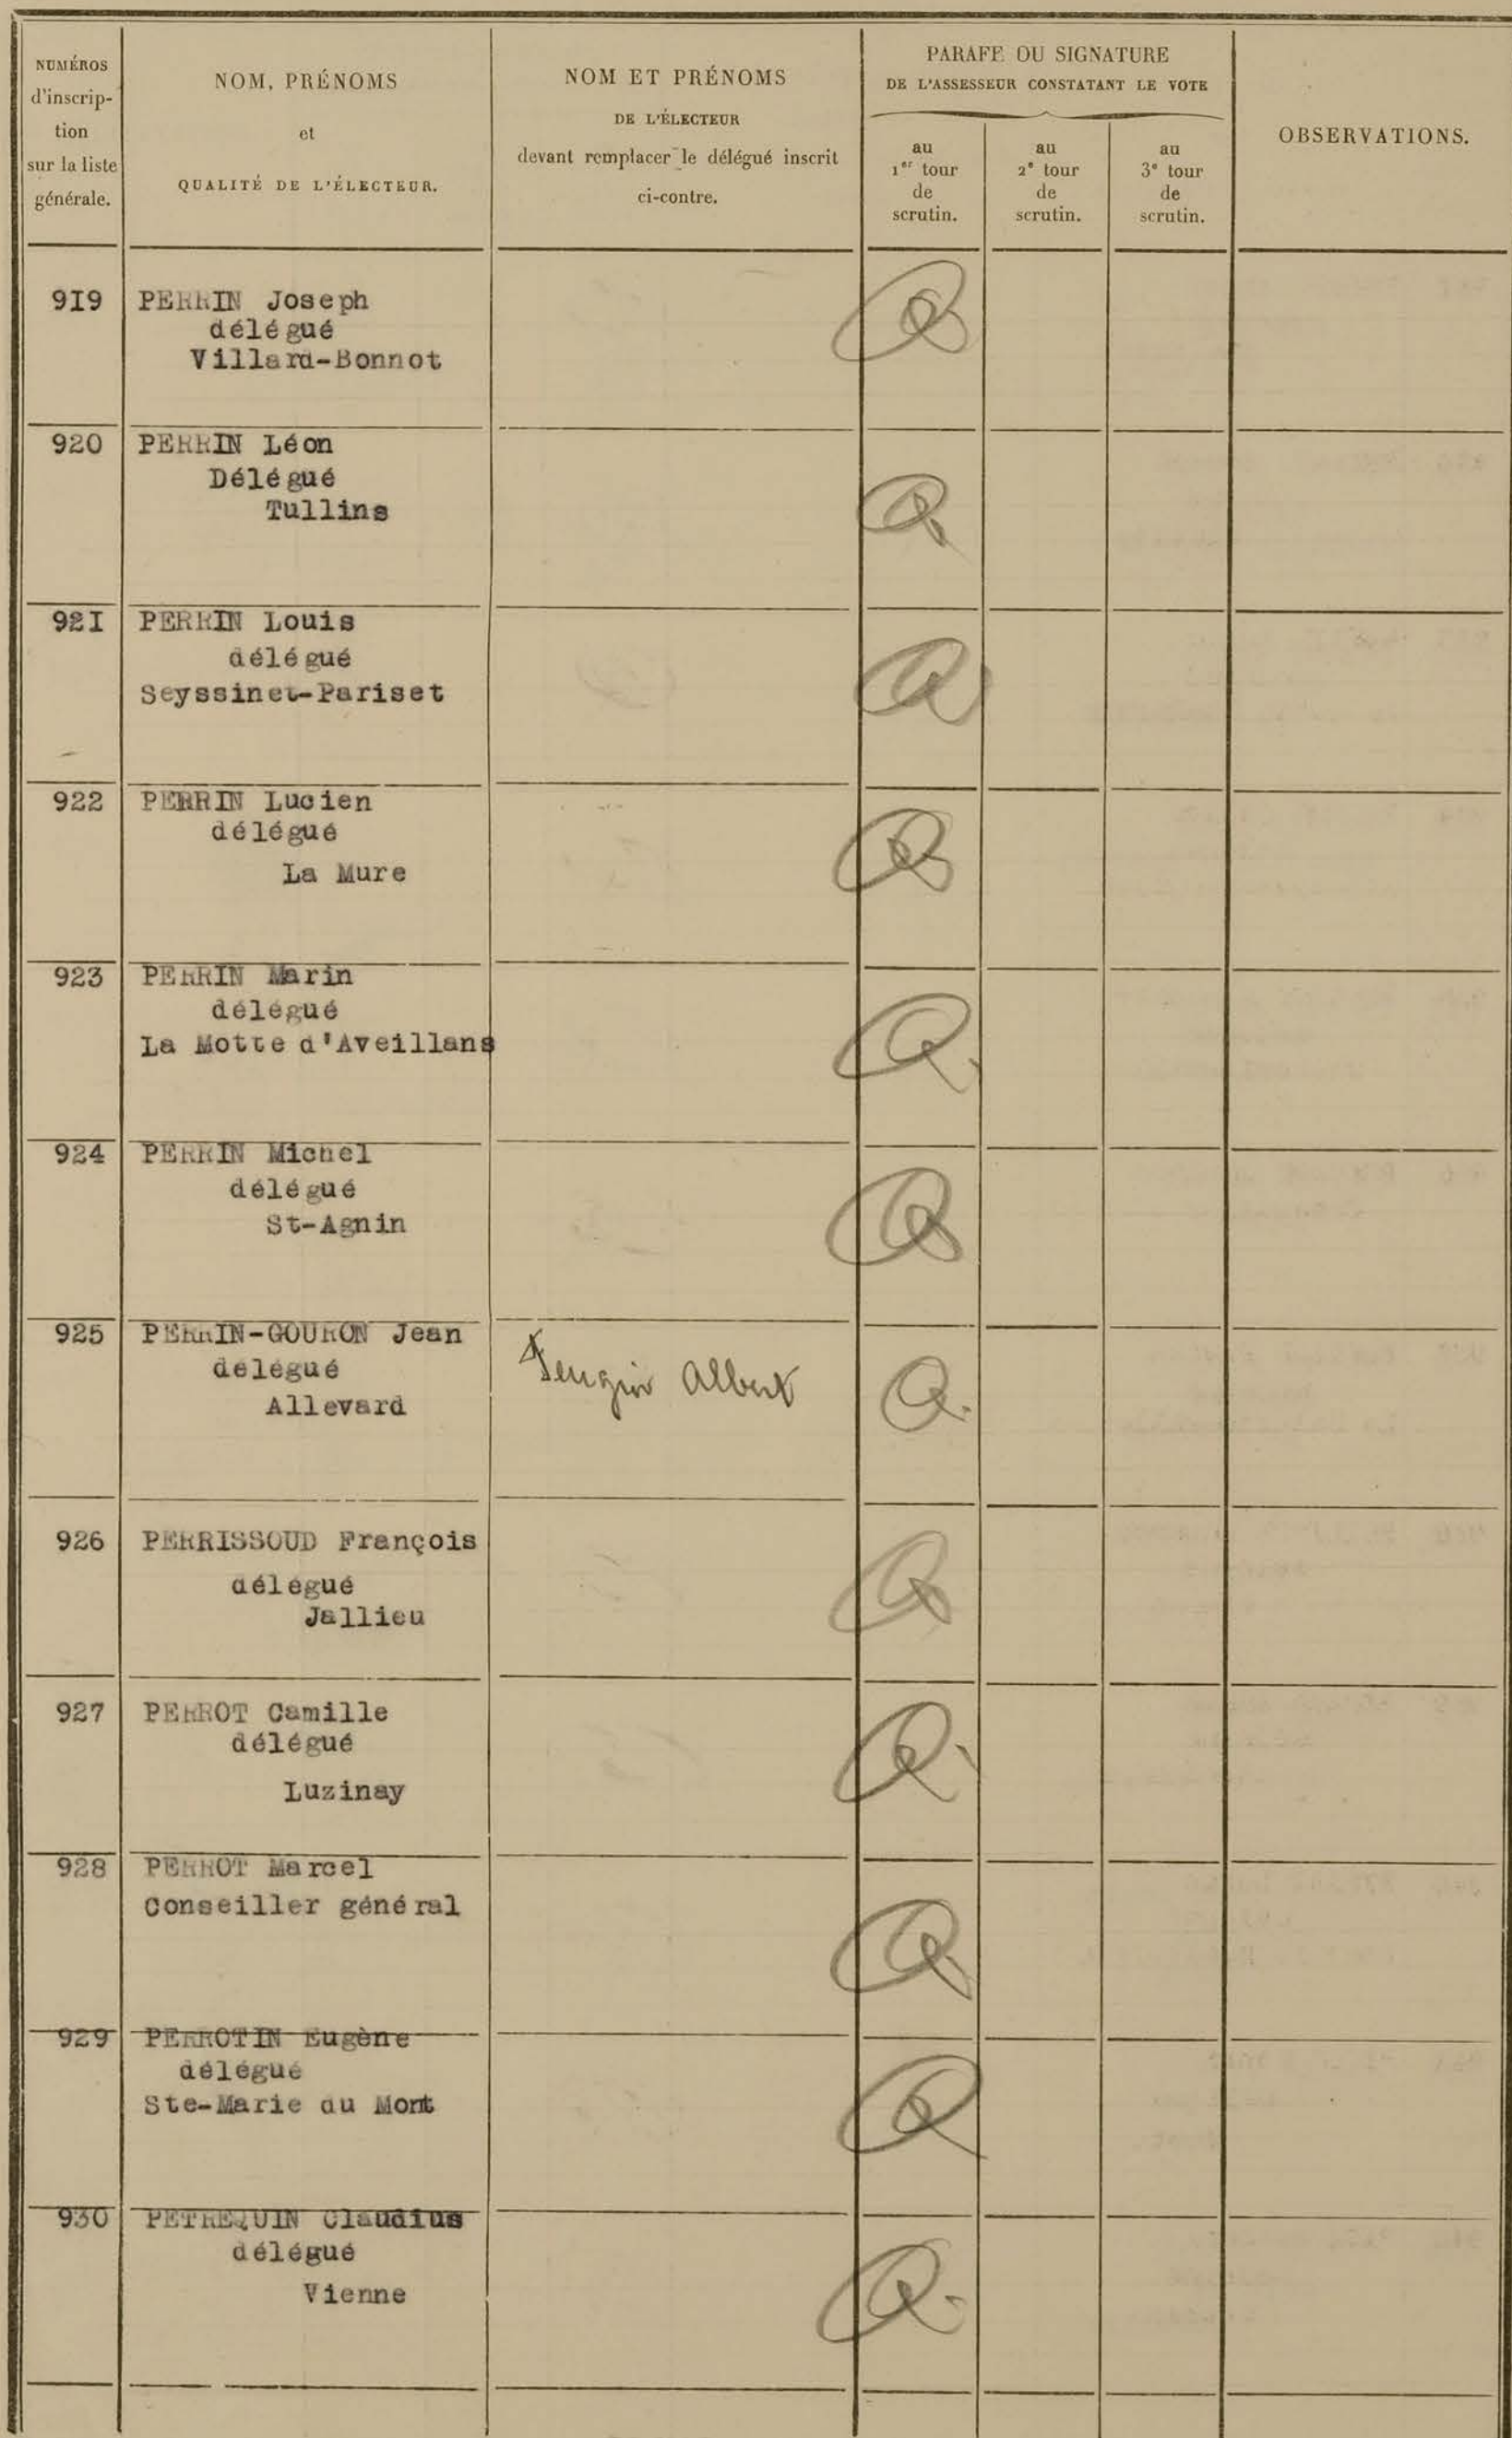 NUMÉROS
d'inscrip-
tion
sur la liste
générale.
NOM, PRÉNOMS
et
QUALITÉ DE L'ÉLECTEUR.
NOM ET PRÉNOMS
DE L'ÉLECTEUR
devant remplacer le délégué inscrit
ci-contre.
PARAFE OU SIGNATURE
DE L'ASSESSEUR CONSTATANT LE VOTE
au
1er tour
de
scrutin.
au
2e tour
de
scrutin.
au
3e tour
de
scrutin.
OBSERVATIONS.
9I9 PERRIN Joseph
délégué
Villard-Bonnot
920 PERRIN Léon
Délégué
Tullins
92I PERRIN Louis
délégué
Seyssinet-Pariset
922 PERRIN Lucien
délégué
La Mure
923 PERRIN Marin
délégué
La Motte d'Aveillans
924 PERRIN Michel
délégué
St-Agnin
925 PERRIN-GOURON Jean
délégué
Allevard
Albert
926 PERRISSOUD François
délégué
Jallieu
927 PERROT Camille
délégué
Luzinay
928 PERROT Marcel
Conseiller général
929 PERROTIN Eugène
délégué
Ste-Marie du Mont
930 PETREQUIN Claudius
délégué
Vienne